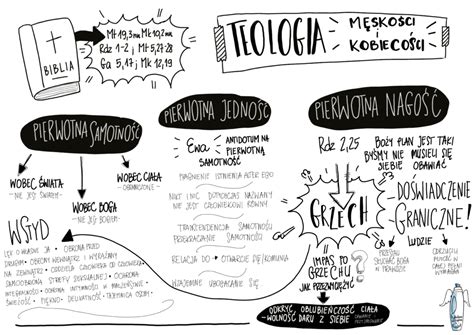 BIBLIA
Mt 19,3nn Mk 10,2nn
Rdz 1-2 Mt 5,27-28
Ga 5,17 Mk 12,19
TEOLOGIA
MĘSKOŚCI
i
KOBIECOŚCI
PIERWOTNA SAMOTNOŚĆ
WOBEC ŚWIATA
- NIE JEST ŚWIATEM -
WOBEC BOGA
- NIE JEST BOGIEM -
WOBEC CIAŁA
- OGRANICZONE -
WSTYD
LĘK O WŁASNE JA · OBRONA PRZED
OBIEKTEM
NA ZEWNĄTRZ · ODDZIELA CZŁOWIEKA OD CZŁOWIEKA
SAMOOBRONA STREFY SEKSUALNEJ · OCHRONA
INTEGRALNOŚCI · OCHRONA INTYMNOŚCI W MAŁŻEŃSTWIE
ŚWIĘTOŚĆ, PIĘKNO, DELIKATNOŚĆ, TAJEMNICA OSOBY
PIERWOTNA JEDNOŚĆ
Ewa
ANTIDOTUM NA
PIERWOTNĄ
SAMOTNOŚĆ
PRAGNIENIE ISTNIENIA ALTER EGO
NIKT I NIC DOTYCHCZAS NAZWANY
NIE JEST CZŁOWIEKOWI RÓWNY.
TRANSCENDENCJA SAMOTNOŚCI
PRZEKRACZANIE SAMOTNOŚCI
RELACJA DO OTWARCIE SIĘ / KOMUNIA
WZAJEMNE UBOGACANIE SIĘ.
PIERWOTNA NAGOŚĆ
Rdz 2,25
BOŻY PLAN JEST TAKI
BYŚMY NIE MUSIELI SIĘ
SIEBIE OBAWIAĆ
GRZECH
DOŚWIADCZENIE
GRANICZNE!
LUDZIE
PRZESTALI
SŁUCHAĆ BOGA
W PRAWDZIE
IMPAS PO
GRZECHU
JAK PRZEZWYCIĘŻYĆ
?
ODKRYĆ OBLUBIEŃCZOŚĆ CIAŁA
- WOLNOŚĆ DARU Z SIEBIE